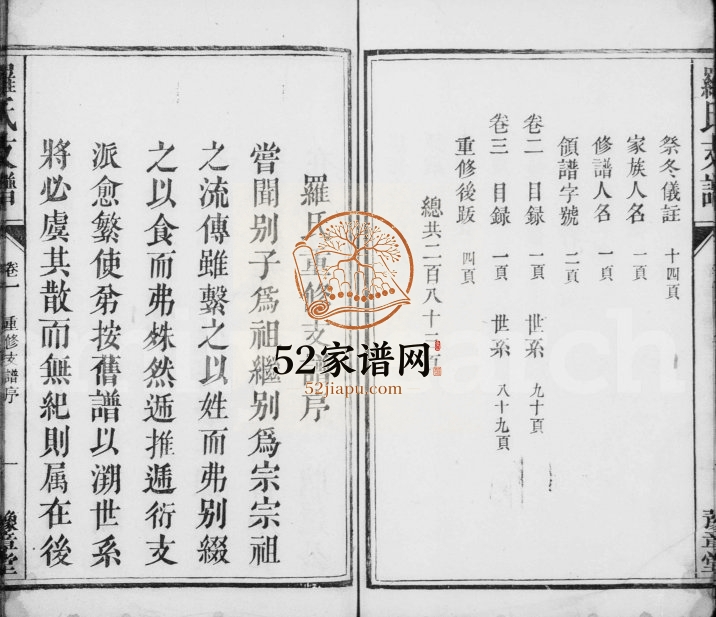 羅氏支譜
祭冬儀註 十四頁
家族人名 一頁
修譜人名 一頁
領譜字號 二頁
卷二 目録 一頁 世系 九十頁
卷三 目録 一頁 世系 八十九頁
重修後跋 四頁
總共二百八十二頁
豫章堂
羅氏重修支譜序
嘗聞别子爲祖繼别爲宗宗祖
之流傳雖繫之以姓而弗别綴
之以食而弗殊然遞推遞衍支
派愈繁使弟按舊譜以溯世系
將必虞其散而無紀則属在後
羅氏支譜
卷一
重修支譜序
一
豫章堂
52家谱网
52jiapu.com